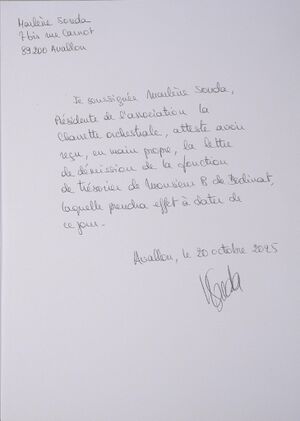 Marlène Souda
7 bis rue Carnot
89200 Avallon
Je soussignée Marlène Souda,
Présidente de l'association la
Charette orchestrale, atteste avoir
reçu, en main propre, la lettre
de démission de la fonction
de trésorier de Monsieur B de
laquelle prendra effet à dater de
ce jour.
Avallon, le 20 octobre 2025